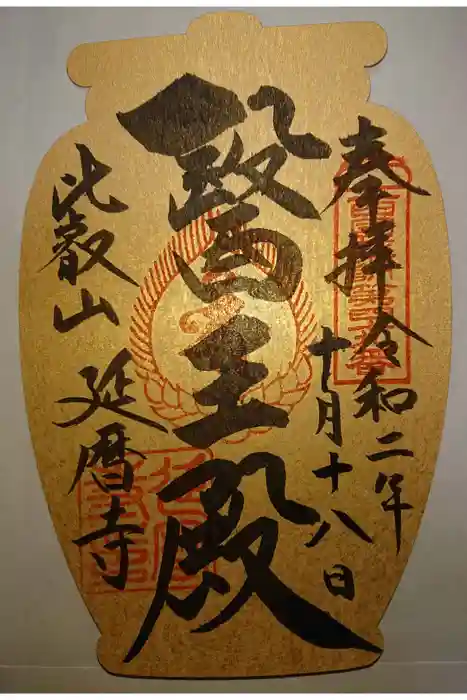 奉拝
令和二年
十月十八日
醫王殿
比叡山 延暦寺